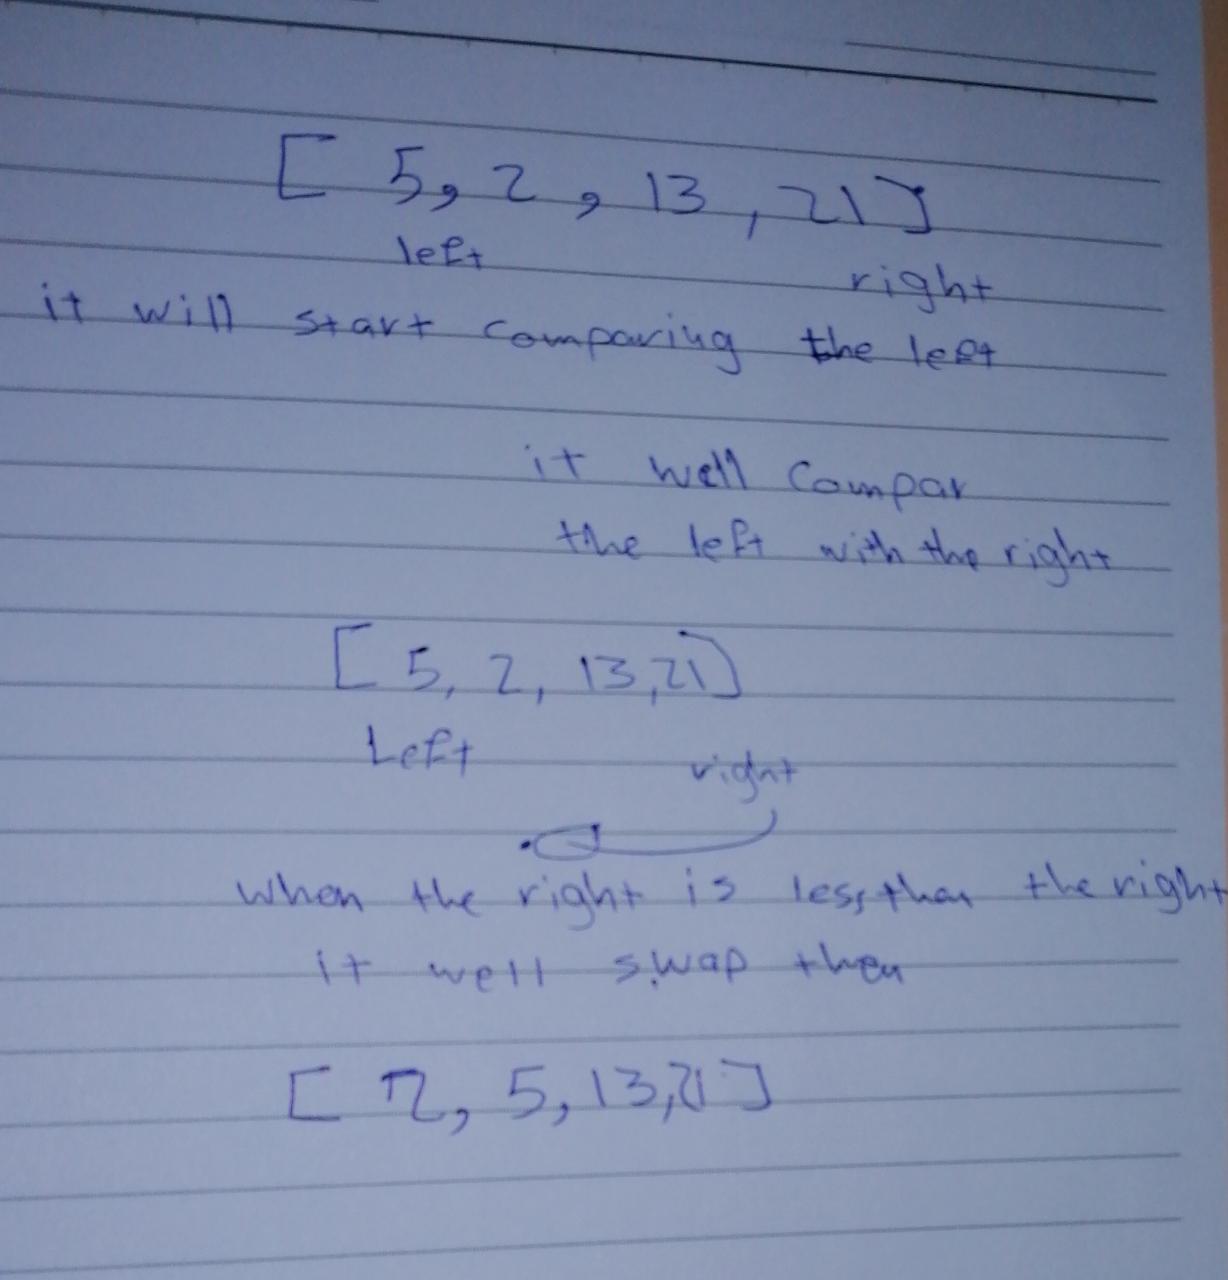 [ 5, 2, 13, 21]
left
right
it will start comparing the left
it well Compar
the left with the right
[ 5, 2, 13,21]
Left
right
when the right is less than the right
it well swap then
[ 2, 5, 13,21]